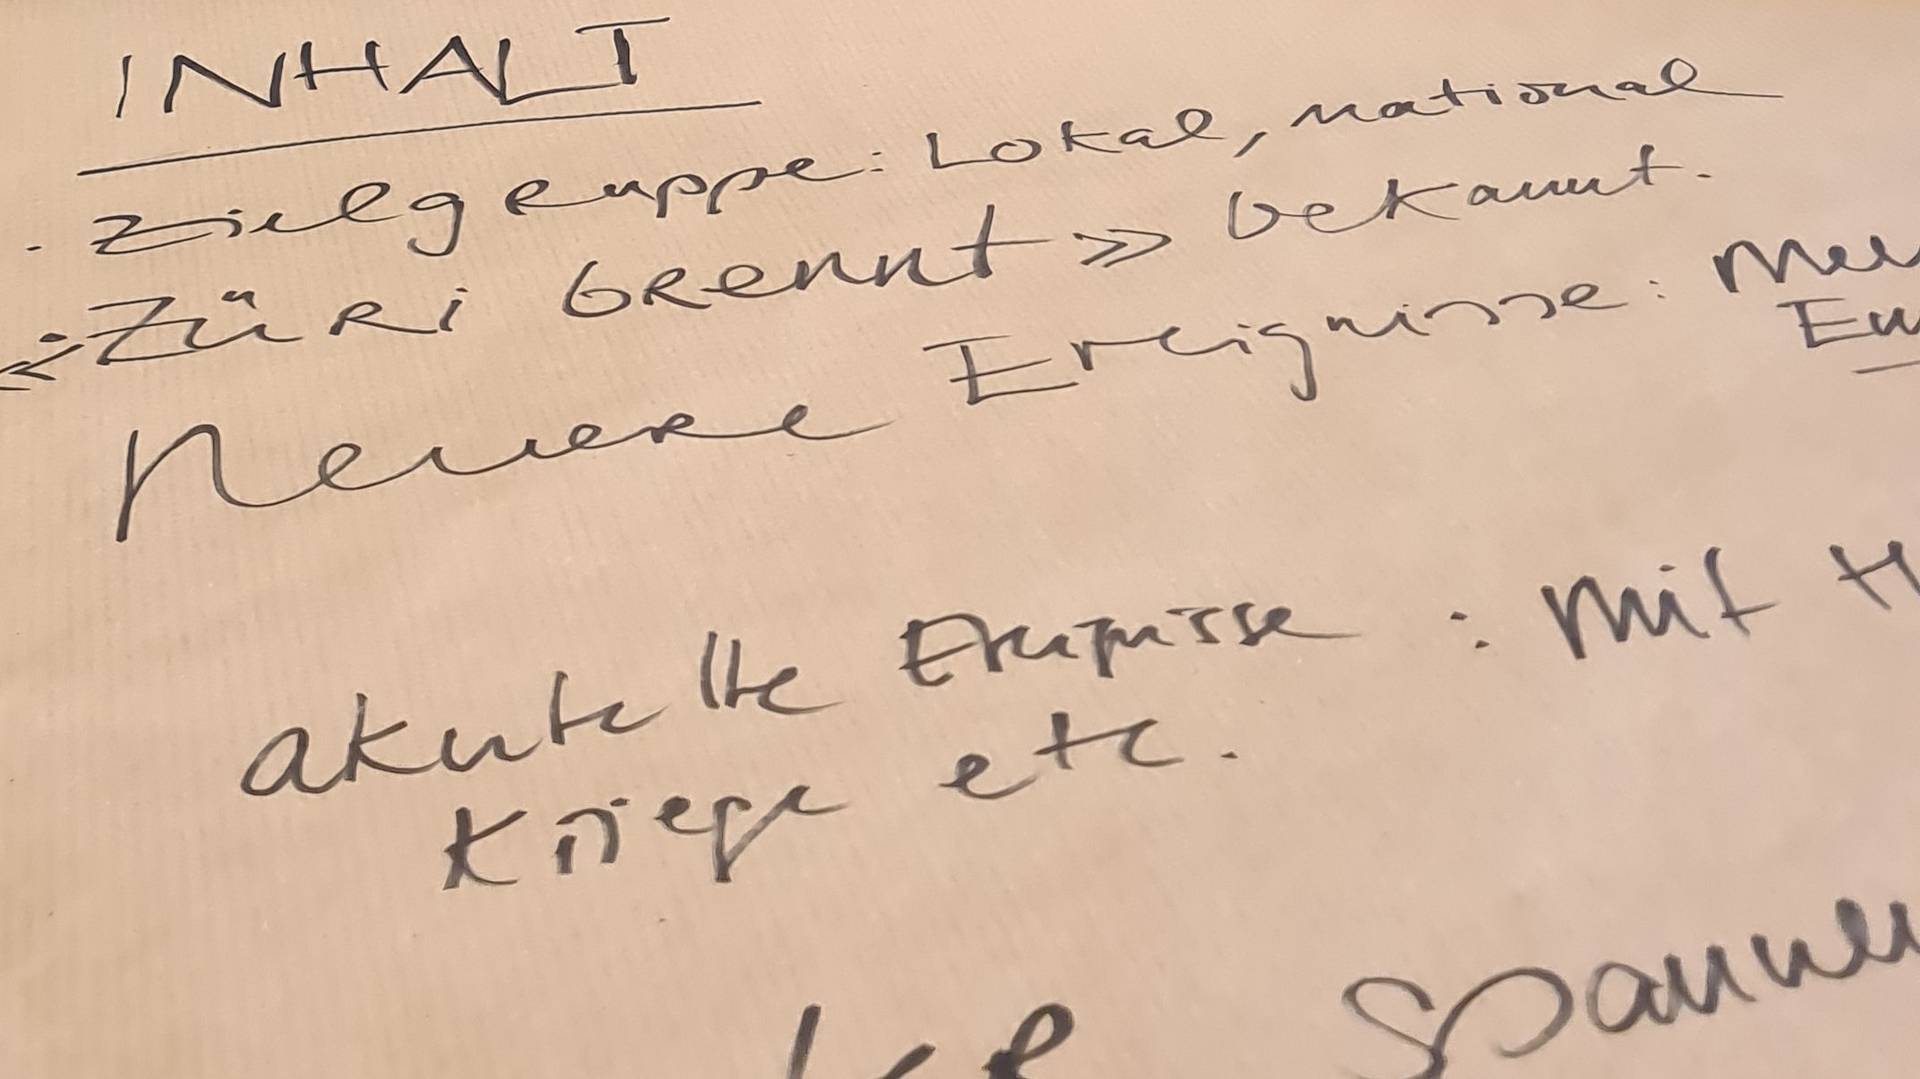 INHALT
· Zielgruppe: Lokal, national
«Züri brennt» bekannt.
Neuere Ereignisse:
akutelle Ereignisse : mit
Kriege etc.